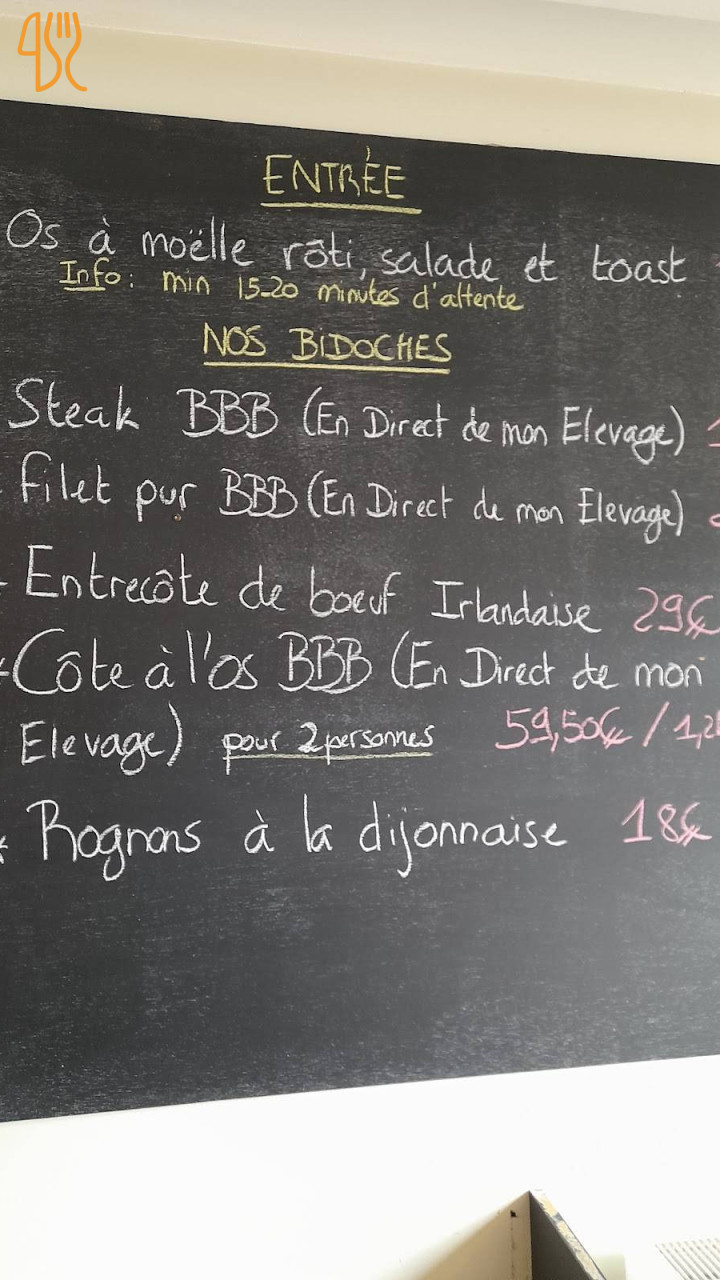 ENTRÉE
Os à moëlle rôti, salade et toast
Info: min 15-20 minutes d'attente
NOS BIDOCHES
Steak BBB (En Direct de mon Elevage)
Filet pur BBB (En Direct de mon Elevage)
Entrecôte de boeuf Irlandaise 29€
Côte à l'os BBB (En Direct de mon
Elevage) pour 2 personnes 59,50€ / 1,2
* Rognons à la dijonnaise 18€